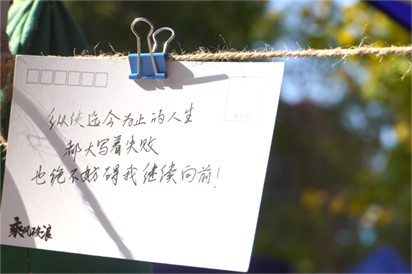 纵使迄今为止的人生
都大写着失败
也绝不妨碍我继续向前！
乘风破浪